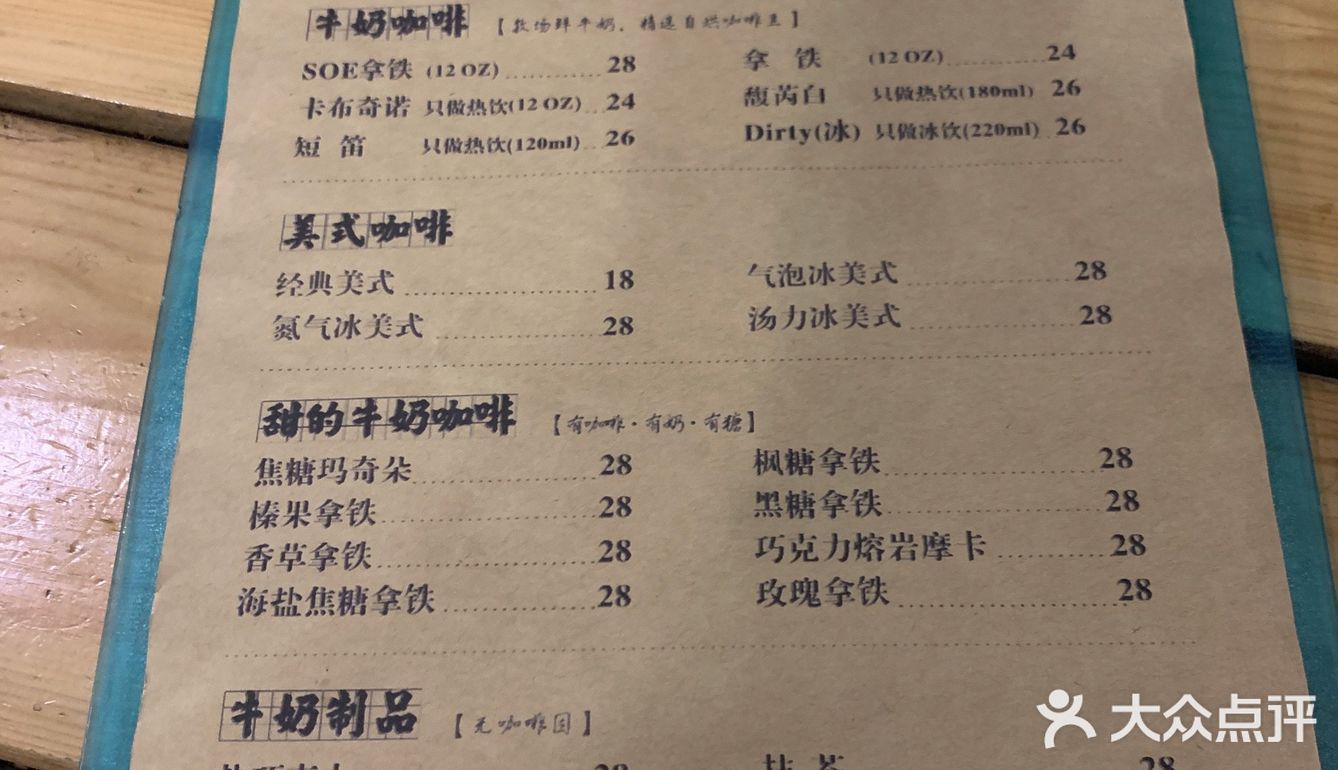 牛奶咖啡 【牧场鲜牛奶，精选自烘咖啡豆】
SOE拿铁 (12 OZ) 28 拿 铁 (12 OZ) 24
卡布奇诺 只做热饮(12 OZ) 24 馥芮白 只做热饮(180ml) 26
短 笛 只做热饮(120ml) 26 Dirty(冰) 只做冰饮(220ml) 26
美式咖啡
经典美式 18 气泡冰美式 28
氮气冰美式 28 汤力冰美式 28
甜的牛奶咖啡 【有咖啡·有奶·有糖】
焦糖玛奇朵 28 枫糖拿铁 28
榛果拿铁 28 黑糖拿铁 28
香草拿铁 28 巧克力熔岩摩卡 28
海盐焦糖拿铁 28 玫瑰拿铁 28
牛奶制品 【无咖啡因】
抹 茶 28
大众点评